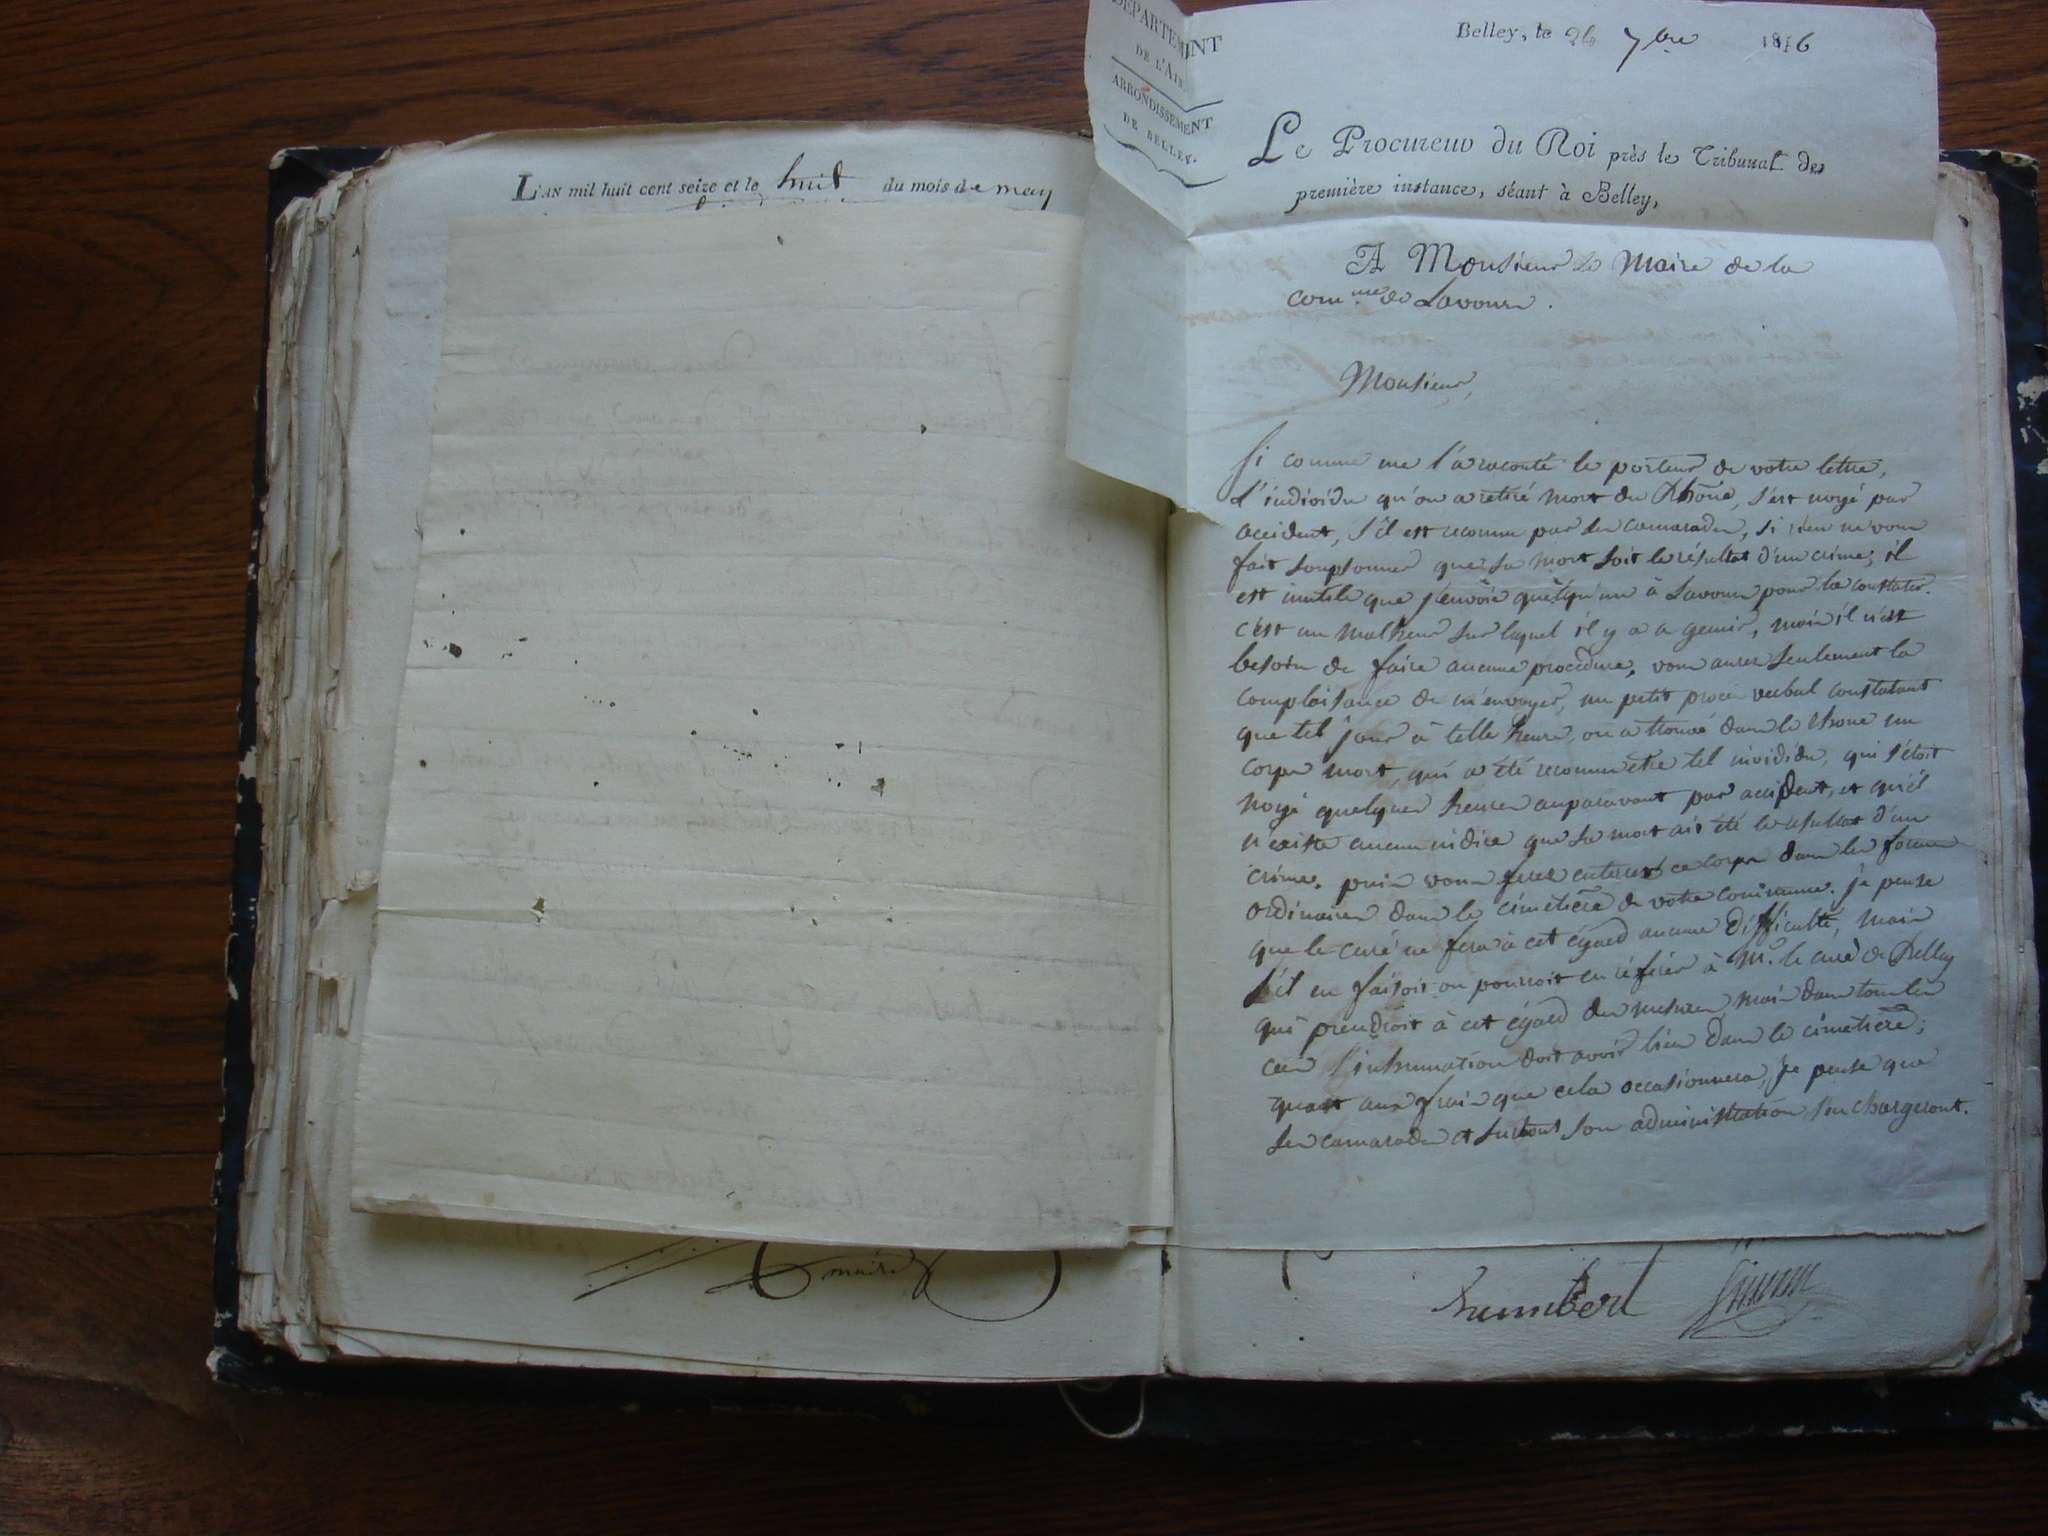 L'AN mil huit cent seize et le huit du mois de may
maire
DÉPARTEMENT
DE L'AIN
ARRONDISSEMENT
DE BELLEY.
Belley, le 26 7bre 1816
Le Procureur du Roi près le Tribunal de
première instance, séant à Belley,
A Monsieur le Maire de la
comme de Lavours.
Monsieur,
Si comme me l'a raconté le porteur de votre lettre,
l'individu qu'on a retiré mort du Rhône, s'est noyé par
accident, s'il est reconnu par ses camarades, si rien ne vous
fait soupsonner que sa mort soit le résultat d'un crime, il
est inutile que j'envoie quelqu'un à Lavours pour la constater.
c'est un malheur sur lequel il y a a gemir, mais il n'est
besoin de faire aucune procédure, vous aurez seulement la
complaisance de m'envoyer, un petit procès verbal constatant
que tel jour à telle heure, on a trouvé dans le Rhone un
corps mort, qui a été reconnu etre tel invididu, qui s'étoit
noyé quelques heures auparavant par accident, et qu'il
n'existe aucun indice que sa mort ait été le résultat d'un
crime. puis vous ferez enterrer ce corps dans les formes
ordinaires dans le cimetière de votre commune. je pense
que le curé ne fera à cet égard aucune difficulté, mais
s'il en faisoit on pourroit en référer à Mr. le curé de Belley
qui prendroit à cet égard des mesures, mais dans tous les
cas l'inhumation doit avoir lieu dans le cimetière;
quant aux frais que cela occasionnera, je pense que
ses camarades et surtout son administration s'en chargeront.
humbert